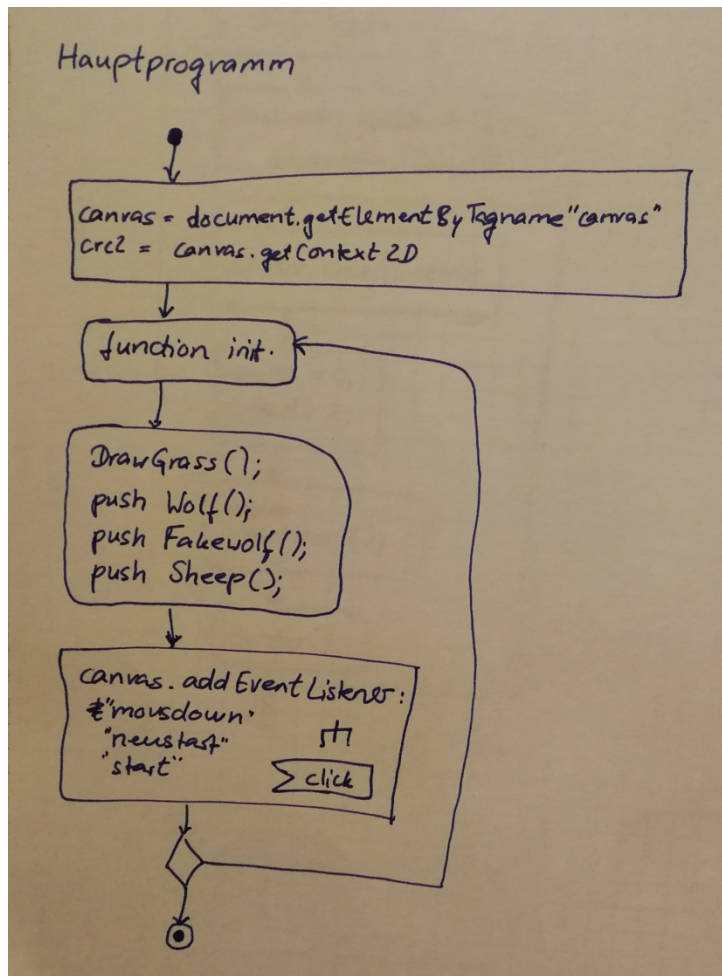 Hauptprogramm
canvas = document.getElementByTagname"canvas"
crc2 = canvas.getContext2D
function init.
DrawGrass();
push Wolf();
push Fakewolf();
push Sheep();
canvas.addEventListener:
"mousdown"
"neustart"
"start"
click